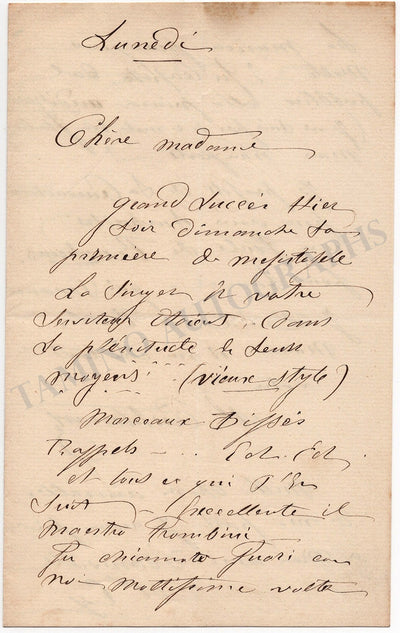 Lunedi
Chère madame
grand succès Hier
soir dimanche la
première de mefistofele
La Singer et votre
serviteur étaient .. dans
la plénitude de leurs
moyens ... (vieux style)
Morceaux Bissés
Rappels - ... Ect. Ect.
et tout ce qui s'En
suit - Excellente il
Maestro Trombini
Fu chiamato Fuori con
noi moltissime volte
TAMINO AUTOGRAPHS